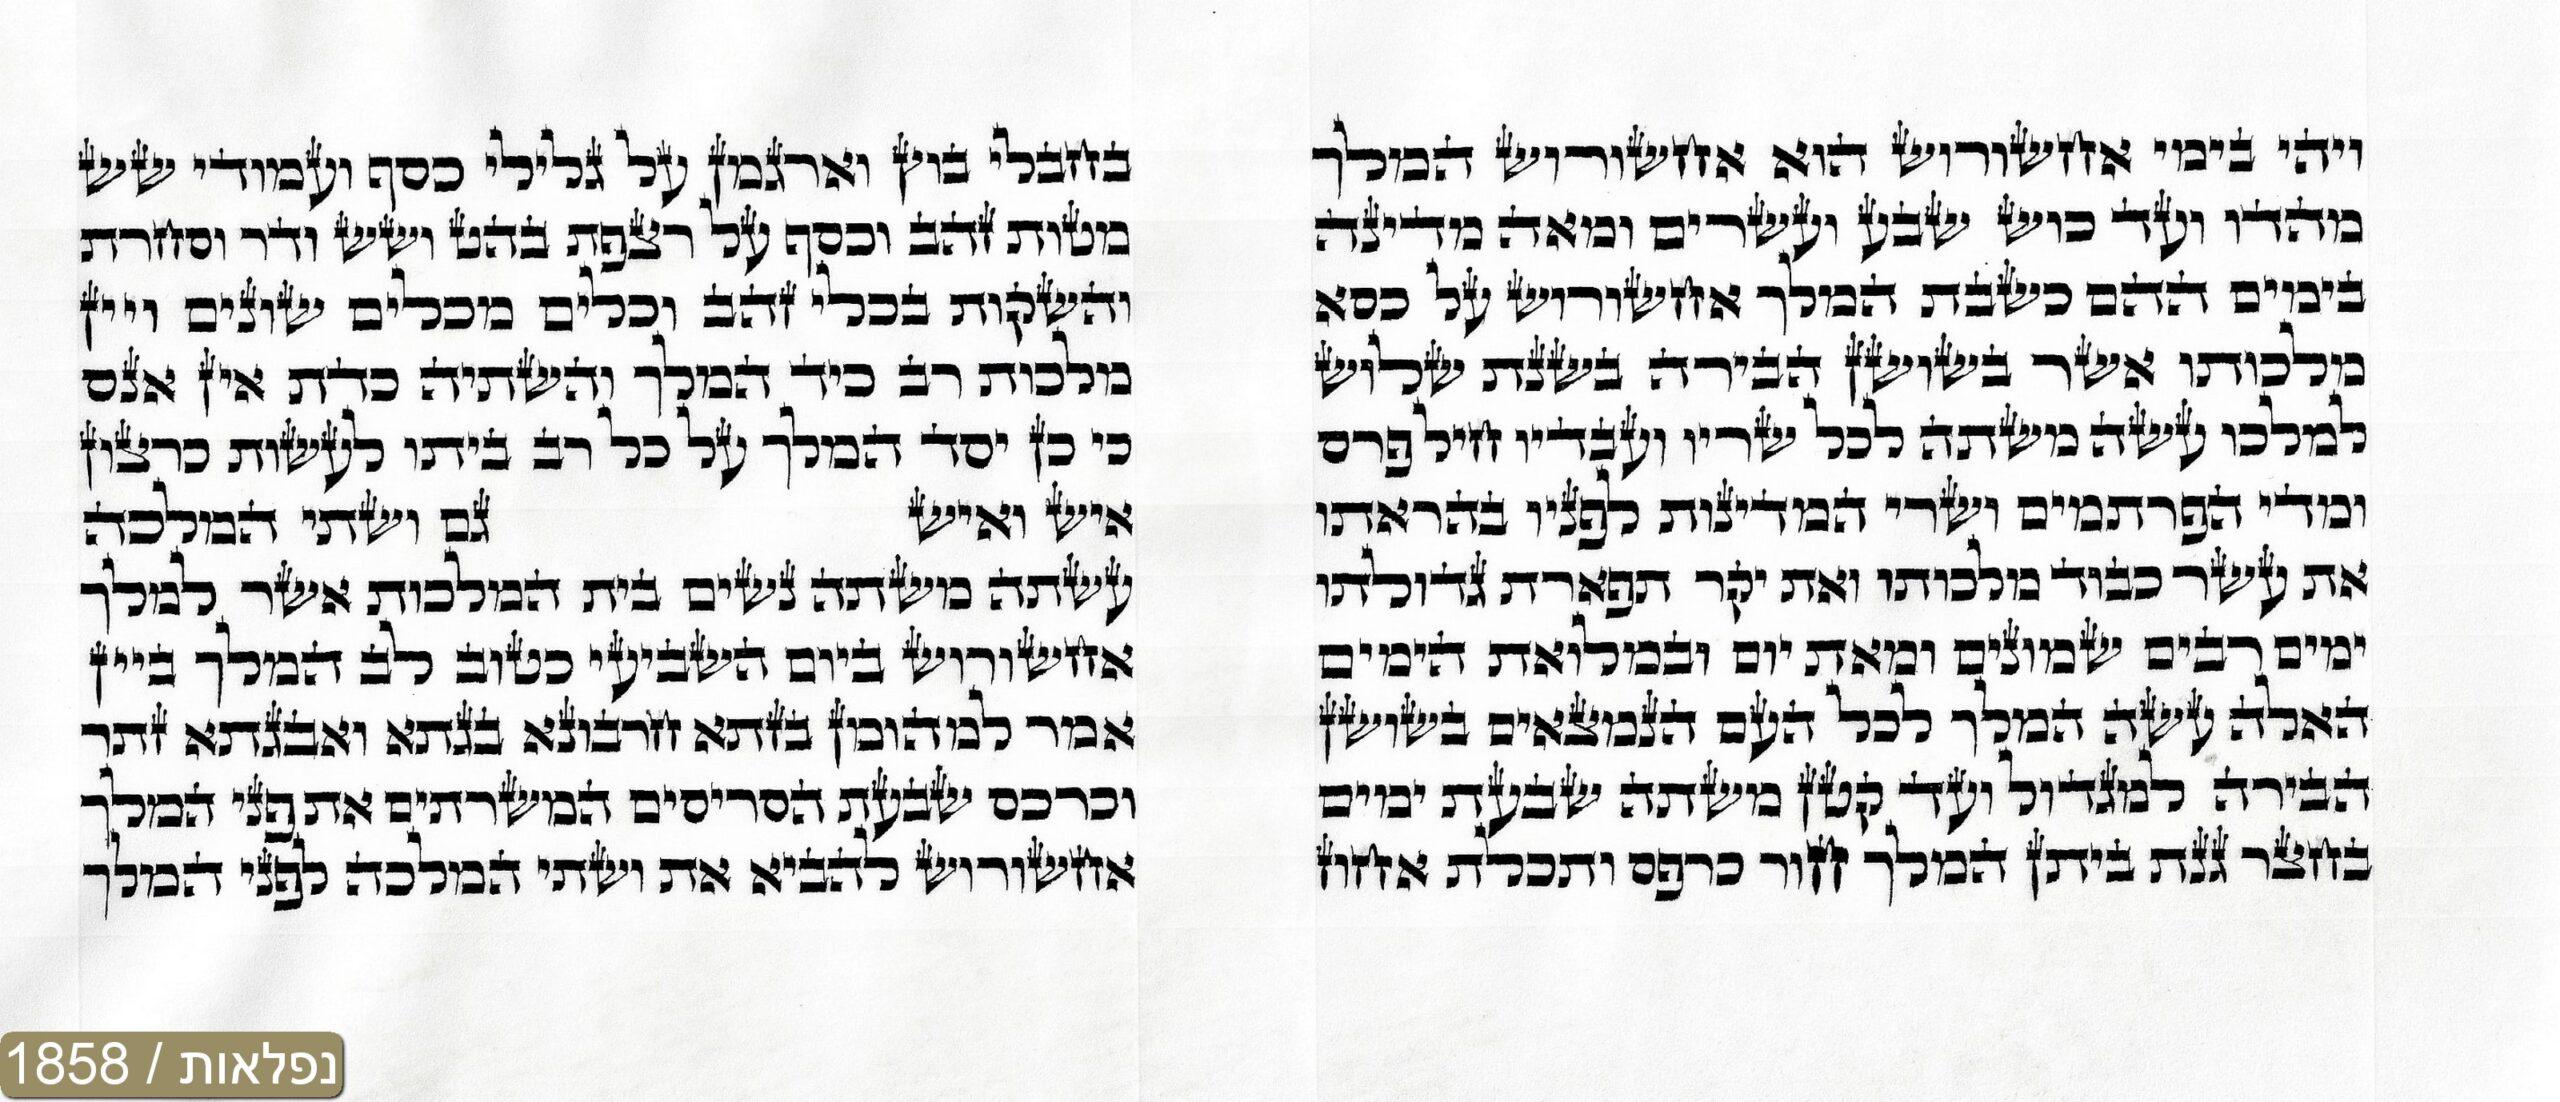 ויהי בימי אחשורוש הוא אחשורוש המלך
מהדו ועד כוש שבע ועשרים ומאה מדינה
בימים ההם כשבת המלך אחשורוש על כסא
מלכותו אשר בשושן הבירה בשנת שלוש
למלכו עשה משתה לכל שריו ועבדיו חיל פרס
ומדי הפרתמים ושרי המדינות לפניו בהראתו
את עשר כבוד מלכותו ואת יקר תפארת גדולתו
ימים רבים שמונים ומאת יום ובמלואת הימים
האלה עשה המלך לכל העם הנמצאים בשושן
הבירה למגדול ועד קטן משתה שבעת ימים
בחצר גנת ביתן המלך חור כרפס ותכלת אחוז
בחבלי בוץ וארגמן על גלילי כסף ועמודי שש
מטות זהב וכסף על רצפת בהט ושש ודר וסחרת
והשקות בכלי זהב וכלים מכלים שונים ויין
מלכות רב כיד המלך והשתיה כדת אין אנס
כי כן יסד המלך על כל רב ביתו לעשות כרצון
איש ואיש גם ושתי המלכה
עשתה משתה נשים בית המלכות אשר למלך
אחשורוש ביום השביעי כטוב לב המלך ביין
אמר למהומן בזתא חרבונא בגתא ואבגתא זתר
וכרכס שבעת הסריסים המשרתים את פני המלך
אחשורוש להביא את ושתי המלכה לפני המלך
נפלאות / 1858